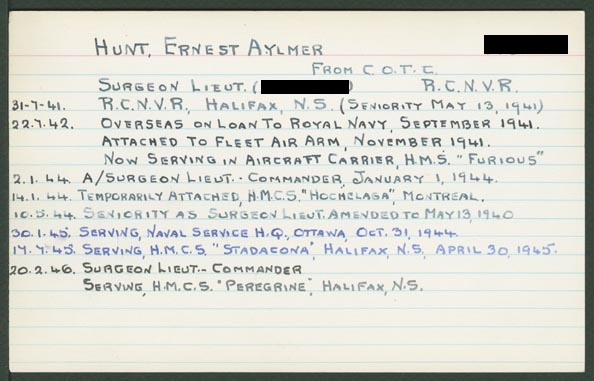 HUNT, ERNEST AYLMER
FROM C.O.T.C.
SURGEON LIEUT. ( ) R.C.N.V.R.
31-7-41. R.C.N.V.R, HALIFAX, N.S. (SENIORITY MAY 13, 1941)
22.7.42. OVERSEAS ON LOAN TO ROYAL NAVY, SEPTEMBER 1941.
ATTACHED TO FLEET AIR ARM, NOVEMBER 1941.
NOW SERVING IN AIRCRAFT CARRIER, H.M.S. "FURIOUS"
2.1.44. A/SURGEON LIEUT.-COMMANDER, JANUARY 1, 1944.
14.1.44. TEMPORARILY ATTACHED, H.M.C.S. "HOCHELAGA", MONTREAL.
10.5.44. SENIORITY AS SURGEON LIEUT. AMENDED TO MAY 13, 1940
30.1.45. SERVING, NAVAL SERVICE H.Q., OTTAWA, OCT. 31, 1944.
17.7.45. SERVING, H.M.C.S. "STADACONA", HALIFAX, N.S, APRIL 30, 1945.
20.2.46. SURGEON LIEUT.-COMMANDER
SERVING, H.M.C.S. "PEREGRINE", HALIFAX, N.S.